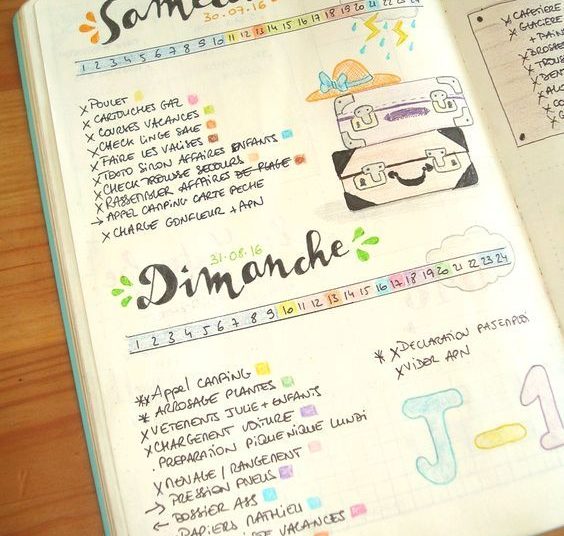 Samedi
30.07.16
1 2 3 4 5 6 7 8 9 10 11 12 13 14 15 16 17 18 19 20 21
x POULET
x CARTOUCHES GAZ
x COURSES VACANCES
x CHECK LINGE SALE
x FAIRE LES VALISES
x TDOTO SIMON AFFAIRES ENFANTS
x CHECK TROUSSE SECOURS
x RASSEMBLER AFFAIRES DE PLAGE
→ APPEL CAMPING CARTE PECHE
x CHARGE GONFLEUR + APN
31.08.16
Dimanche
1 2 3 4 5 6 7 8 9 10 11 12 13 14 15 16 17 18 19 20 21 22 23 24
*x APPEL CAMPING
* ARROSAGE PLANTES
x VETEMENTS JULIE + ENFANTS
x CHARGEMENT VOITURE
. PREPARATION PIQUE NIQUE LUNDI
x MENAGE / RANGEMENT
→ PRESSION PNEUS
← DOSSIER ASS
PAPIERS MATHIEU
VACANCES
* x DECLARATION PAJEMPLOI
x VIDER APN
J-1
x CAFETIERE
x GLACIERE
+ PAIN
x BROSSE
x TROUS
x DENT